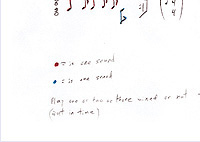 4
4
= in ear sound
= in one sound
Play one or two or three mixed or not
(but in time)